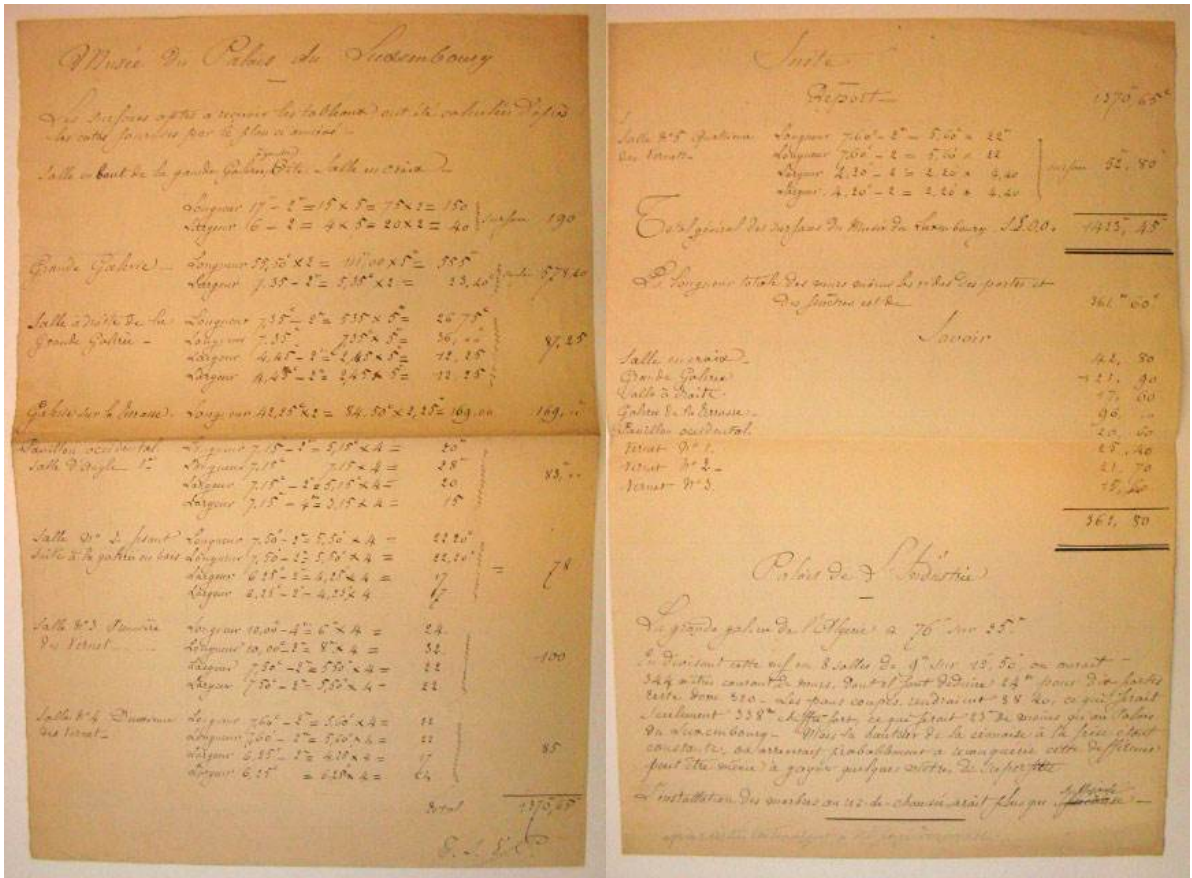 Musée du Palais du Luxembourg
Les surfaces aptes à recevoir les tableaux ont été calculées d'après
les cotes fournies par le plan ci annexé -
Salle en bout de la grande Galerie, dite Salle en croix -
Longueur 17 - 2 = 15 x 5 = 75 x 2 = 150
Largeur 6 - 2 = 4 x 5 = 20 x 2 = 40 surface 190
Grande Galerie - Longueur 55,50 x 2 = 111,00 x 5 = 555
Largeur 7.35 - 2 = 5,35 x 2 = 23,40 578,40
Salle à droite de la Longueur 7,35 - 2 = 535 x 5 = 26 75
Grande Galerie - Longueur 7.35 7.35 x 5 = 36,
Largeur 4,45 - 2 = 2,45 x 5 = 12.25 87,25
Largeur 4,45 - 2 = 2,45 x 5 = 12.25
Galerie sur la terrasse. Longueur 42,25 x 2 = 84,50 x 2,25 = 169.00 169,
Pavillon occidental Longueur 7,15 - 2 = 5,15 x 4 = 20
Salle d'Angle 1 Longueur 7,15 7,15 x 4 = 28
Largeur 7,15 - 2 = 5,15 x 4 = 20 83,
Largeur 7,15 - 4 = 3,15 x 4 = 15
Salle N° 2 faisant Longueur 7,50 - 2 = 5,50 x 4 = 22,20
suite à la galerie en bas Longueur 7,50 - 2 = 5,50 x 4 = 22,20
Largeur 6,25 - 2 = 4,25 x 4 = 17 = 78
Largeur 6,25 - 2 = 4,25 x 4 17
Salle N° 3 Première Longueur 10,00 - 4 = 6 x 4 = 24
des Vernet Longueur 10,00 - 2 = 8 x 4 = 32
Largeur 7,50 - 2 = 5,50 x 4 = 22 100
Largeur 7,50 - 2 = 5,50 x 4 = 22
Salle N° 4 Deuxième Longueur 7,60 - 2 = 5,60 x 4 = 22
des Vernet - Longueur 7,60 - 2 = 5,60 x 4 = 22
Largeur 6,25 - 2 = 4,25 x 4 = 17 85
Largeur 6,25 = 6,25 x 4 = 24
Total 1370,65
Suite
Report 1370,65
Salle N° 5 Quatrième Longueur 7,60 - 2 = 5,60 = 22
des Vernet - Longueur 7,60 - 2 = 5,60 = 22
Largeur 4,20 - 2 = 2,20 = 4,40 surface 52,80
Largeur 4,20 - 2 = 2,20 = 4,40
Total général des surfaces du Musée du Luxembourg. 1423, 45
La longueur totale des murs moins les vides des portes et
des fenêtres est de 361 60
Savoir
Salle en croix - 42, 80
Grande Galerie 121, 90
Salle à droite 17, 60
Galerie de la Terrasse - 96
Pavillon occidental. 20, 60
Vernet N° 1. 25, 40
Vernet N° 2 - 21, 70
Vernet N° 3. 15,
361, 80
Palais de L'Industrie
La grande galerie de l'Algérie a 76 sur 25
En divisant cette nef en 8 salles de 9 sur 12,50 on aurait -
344 mètres courant de murs, dont il faut déduire 24 pour dix portes
reste donc 320 - Les pans coupés rendraient 38 40, ce qui ferait
seulement 338 ce qui serait 23 de moins qu'au Palais
du Luxembourg - Mais la hauteur de la cimaise à la frise étant
constante, on arriverait probablement à cette différence
peut être même à gagner quelques mètres de superficie
L'installation des marbres au rez-de-chaussée serait plus que suffisante -